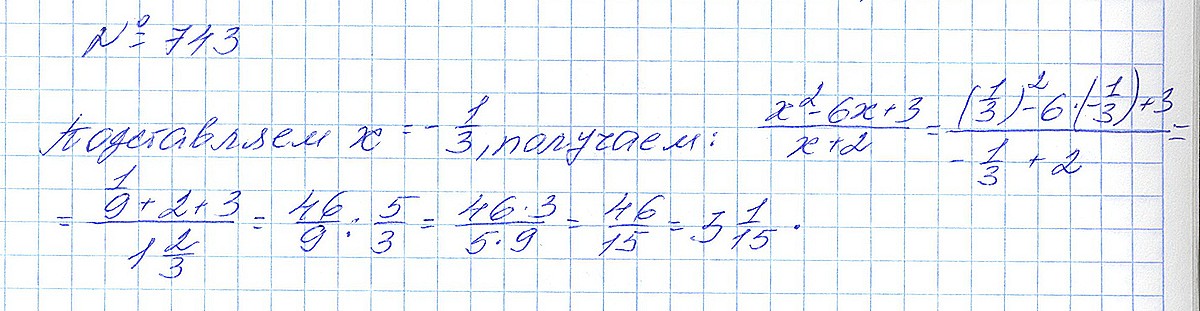 № 743
Подставляем x = -1/3, получаем: (x²-6x+3)/(x+2) = ((1/3)²-6·(-1/3)+3)/(-1/3+2) =
= (1/9+2+3)/(1 2/3) = 46/9 : 5/3 = (46·3)/(5·9) = 46/15 = 3 1/15.